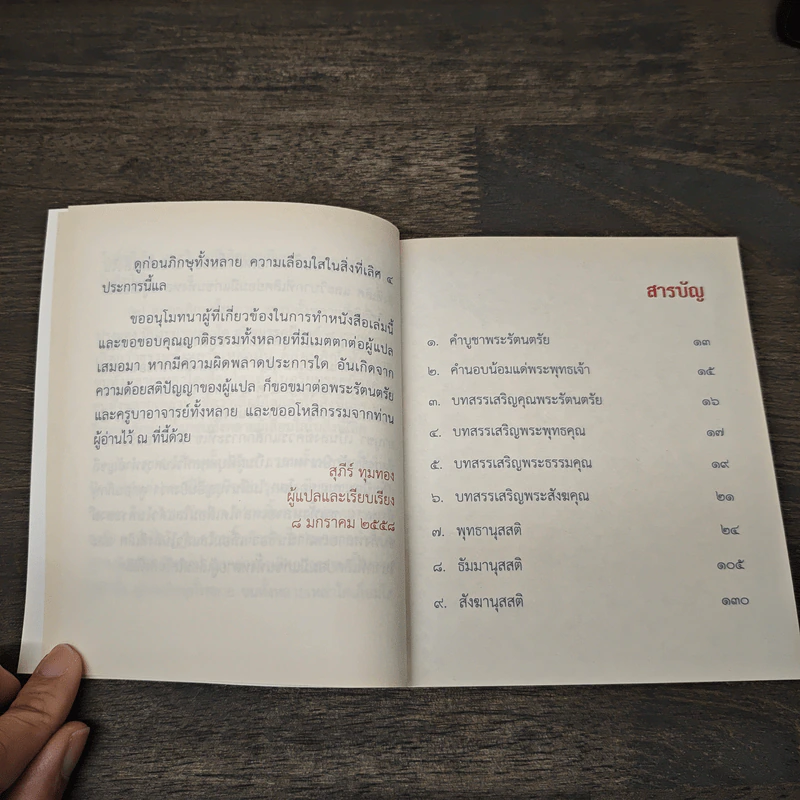 ดูก่อนภิกษุทั้งหลาย ความเลื่อมใสในสิ่งที่เลิศ ๔
ประการนี้แล
ขออนุโมทนาผู้ที่เกี่ยวข้องในการทำหนังสือเล่มนี้
และขอขอบคุณญาติธรรมทั้งหลายที่มีเมตตาต่อผู้แปล
เสมอมา หากมีความผิดพลาดประการใด อันเกิดจาก
ความด้อยสติปัญญาของผู้แปล ก็ขอขมาต่อพระรัตนตรัย
และครูบาอาจารย์ทั้งหลาย และขออโหสิกรรมจากท่าน
ผู้อ่านไว้ ณ ที่นี้ด้วย
สุภีร์ ทุมทอง
ผู้แปลและเรียบเรียง
๘ มกราคม ๒๕๕๘
สารบัญ
๑. คำบูชาพระรัตนตรัย ๑๓
๒. คำนอบน้อมแด่พระพุทธเจ้า ๑๕
๓. บทสรรเสริญคุณพระรัตนตรัย ๑๖
๔. บทสรรเสริญพระพุทธคุณ ๑๗
๕. บทสรรเสริญพระธรรมคุณ ๑๙
๖. บทสรรเสริญพระสังฆคุณ ๒๑
๗. พุทธานุสสติ ๒๔
๘. ธัมมานุสสติ ๑๐๕
๙. สังฆานุสสติ ๑๓๐